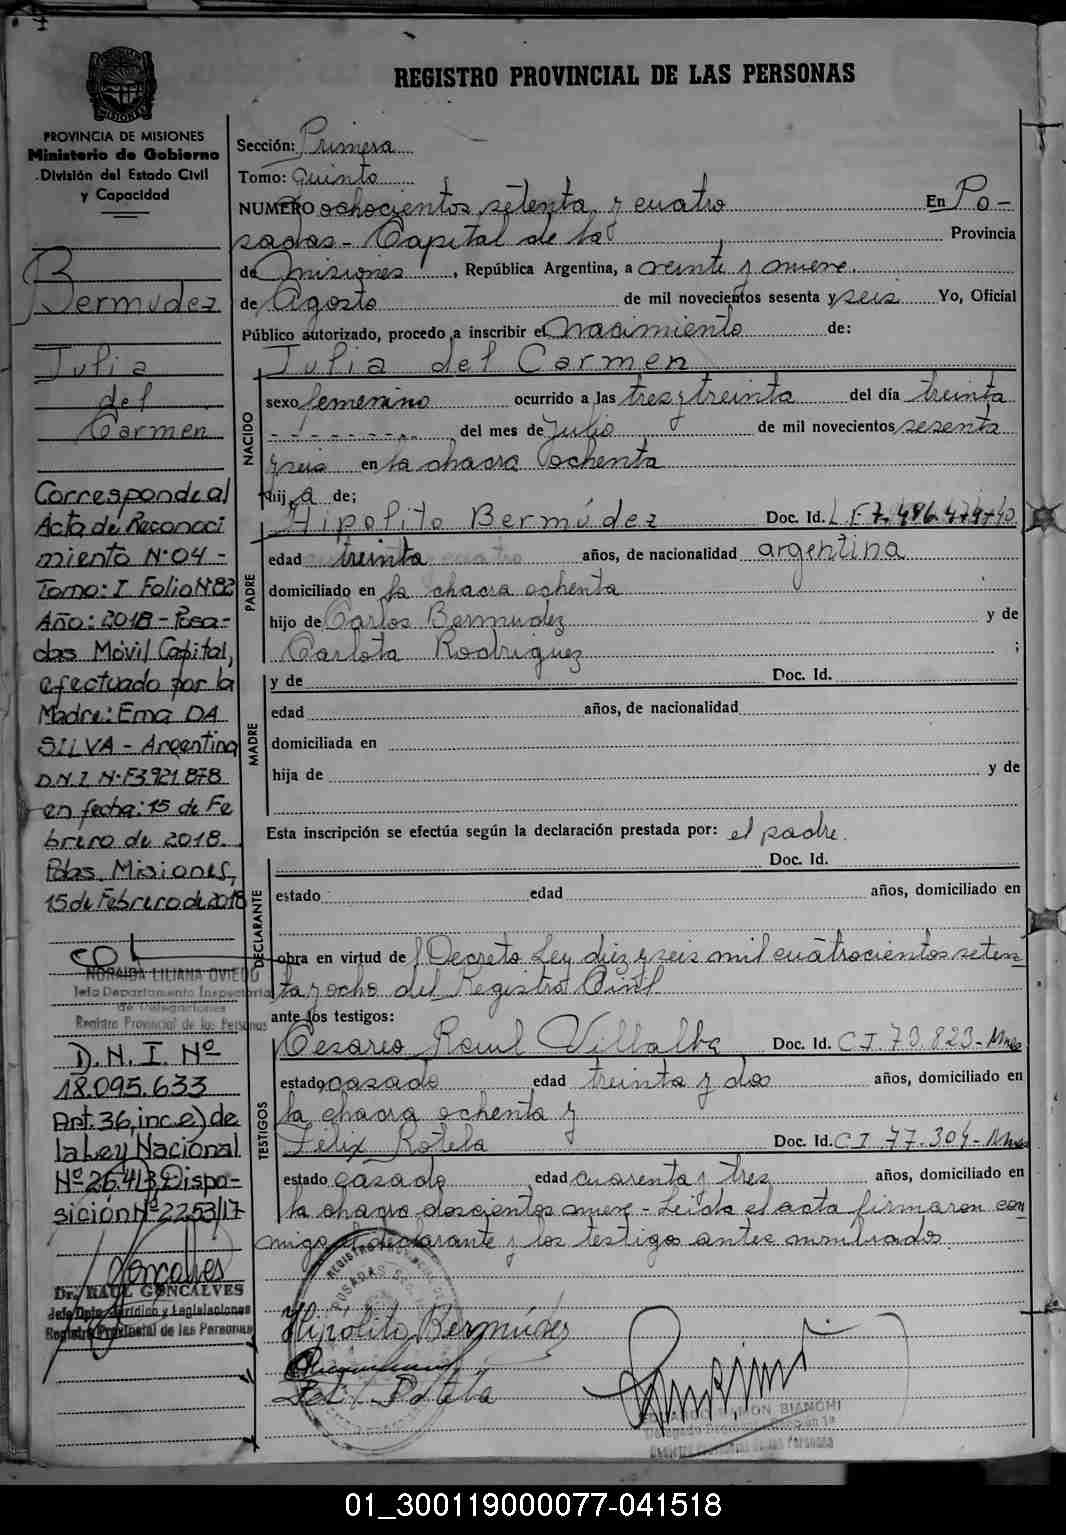 REGISTRO PROVINCIAL DE LAS PERSONAS
PROVINCIA DE MISIONES
Ministerio de Gobierno
División del Estado Civil
y Capacidad
Bermúdez
Julia
del
Carmen
Corresponde al
Acta de Reconoci
miento Nº 04 -
Tomo: I Folio Nº 82
Año: 2018 - Posa-
das Móvil Capital,
efectuado por la
Madre: Ema DA
SILVA - Argentina
D.N.I. Nº F3.921.878
en fecha: 15 de Fe
brero de 2018.
Pdas. Misiones,
15 de Febrero de 2018
NORAIDA LILIANA OVIEDO
Jefa Departamento Inspectoria
de Delegaciones
Registro Provincial de las Personas
D.N.I. Nº
18.095.633
Art. 36, inc. e) de
la Ley Nacional
Nº 26.413, Dispo-
sición Nº 2253/17
Goncalves
Dr. RAUL GONCALVES
Jefe Dpto. Jurídico y Legislaciones
Registro Provincial de las Personas
Sección: Primera
Tomo: Quinto
NUMERO ochocientos setenta y cuatro En Po-
sadas - Capital de la Provincia
de Misiones, República Argentina, a veinte y nueve
de Agosto de mil novecientos sesenta y seis Yo, Oficial
Público autorizado, procedo a inscribir el nacimiento de:
Julia del Carmen
NACIDO
sexo femenino ocurrido a las tres y treinta del día treinta
del mes de Julio de mil novecientos sesenta
y seis en la chacra ochenta
hija de;
Hipolito Bermúdez Doc. Id. L.E 7.486.474
PADRE
edad treinta años, de nacionalidad argentina
domiciliado en la chacra ochenta
hijo de Carlos Bermudez y de
Carlota Rodriguez ;
y de Doc. Id.
MADRE
edad años, de nacionalidad
domiciliada en
hija de y de
Esta inscripción se efectúa según la declaración prestada por: el padre.
Doc. Id.
DECLARANTE
estado edad años, domiciliado en
obra en virtud del Decreto Ley diez y seis mil cuatrocientos seten
ta y ocho del Registro Civil
ante los testigos:
TESTIGOS
Cesareo Raul Villalba Doc. Id. C.I. 79.823 - Mnes
estado casado edad treinta y dos años, domiciliado en
la chacra ochenta y
Felix Rotela Doc. Id. C.I. 77.304 - Mnes
estado casado edad cuarenta y tres años, domiciliado en
la chacra doscientos nueve - Leída el acta firmaron con
migo el declarante y los testigos antes nombrados
Hipólito Bermúdez
Felix Rotela
BIANCHI
01_300119000077-041518